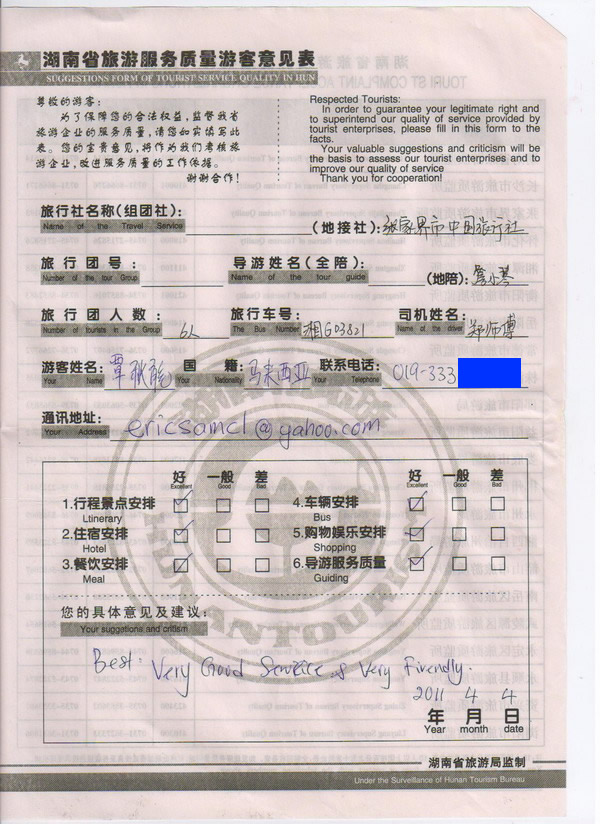 湖南省旅游服务质量游客意见表
SUGGESTIONS FORM OF TOURIST SERVICE QUALITY IN HUN
尊敬的游客:
为了保障您的合法权益,监督我省
旅游企业的服务质量,请您如实填写此
表。您的宝贵意见,将作为我们考核旅
游企业,改进服务质量的工作依据。
谢谢合作!
Respected Tourists:
In order to guarantee your legitimate right and
to superintend our quality of service provided by
tourist enterprises, please fill in this form to the
facts.
Your valuable suggestions and criticism will be
the basis to assess our tourist enterprises and to
improve our quality of service
Thank you for cooperation!
旅行社名称(组团社): (地接社): 张家界市中国旅行社
Name of the Travel Service
旅行团号: 导游姓名(全陪): (地陪):
Number of the tour Group Name of the tour guide
旅行团人数: 6人 旅行车号: 湘G03821 司机姓名: 郑师傅
Number of tourists in the Group The Bus Number Name of the driver
游客姓名: 覃 国籍: 马来西亚 联系电话: 019-333
Your Name Your Nationality Your Telephone
通讯地址: ericsamcl@yahoo.com
Your Address
好 一般 差 好 一般 差
Excellent Good Bad Excellent Good Bad
1.行程景点安排 4.车辆安排
Ltinerary Bus
2.住宿安排 5.购物娱乐安排
Hotel Shopping
3.餐饮安排 6.导游服务质量
Meal Guiding
您的具体意见及建议:
Your suggetions and critism
Best: Very Good Service & Very Firendly.
2011 4 4
年 月 日
Year month day
HUNAN TOURISM
湖南省旅游局监制
Under the Surveillance of Hunan Tourism Bureau